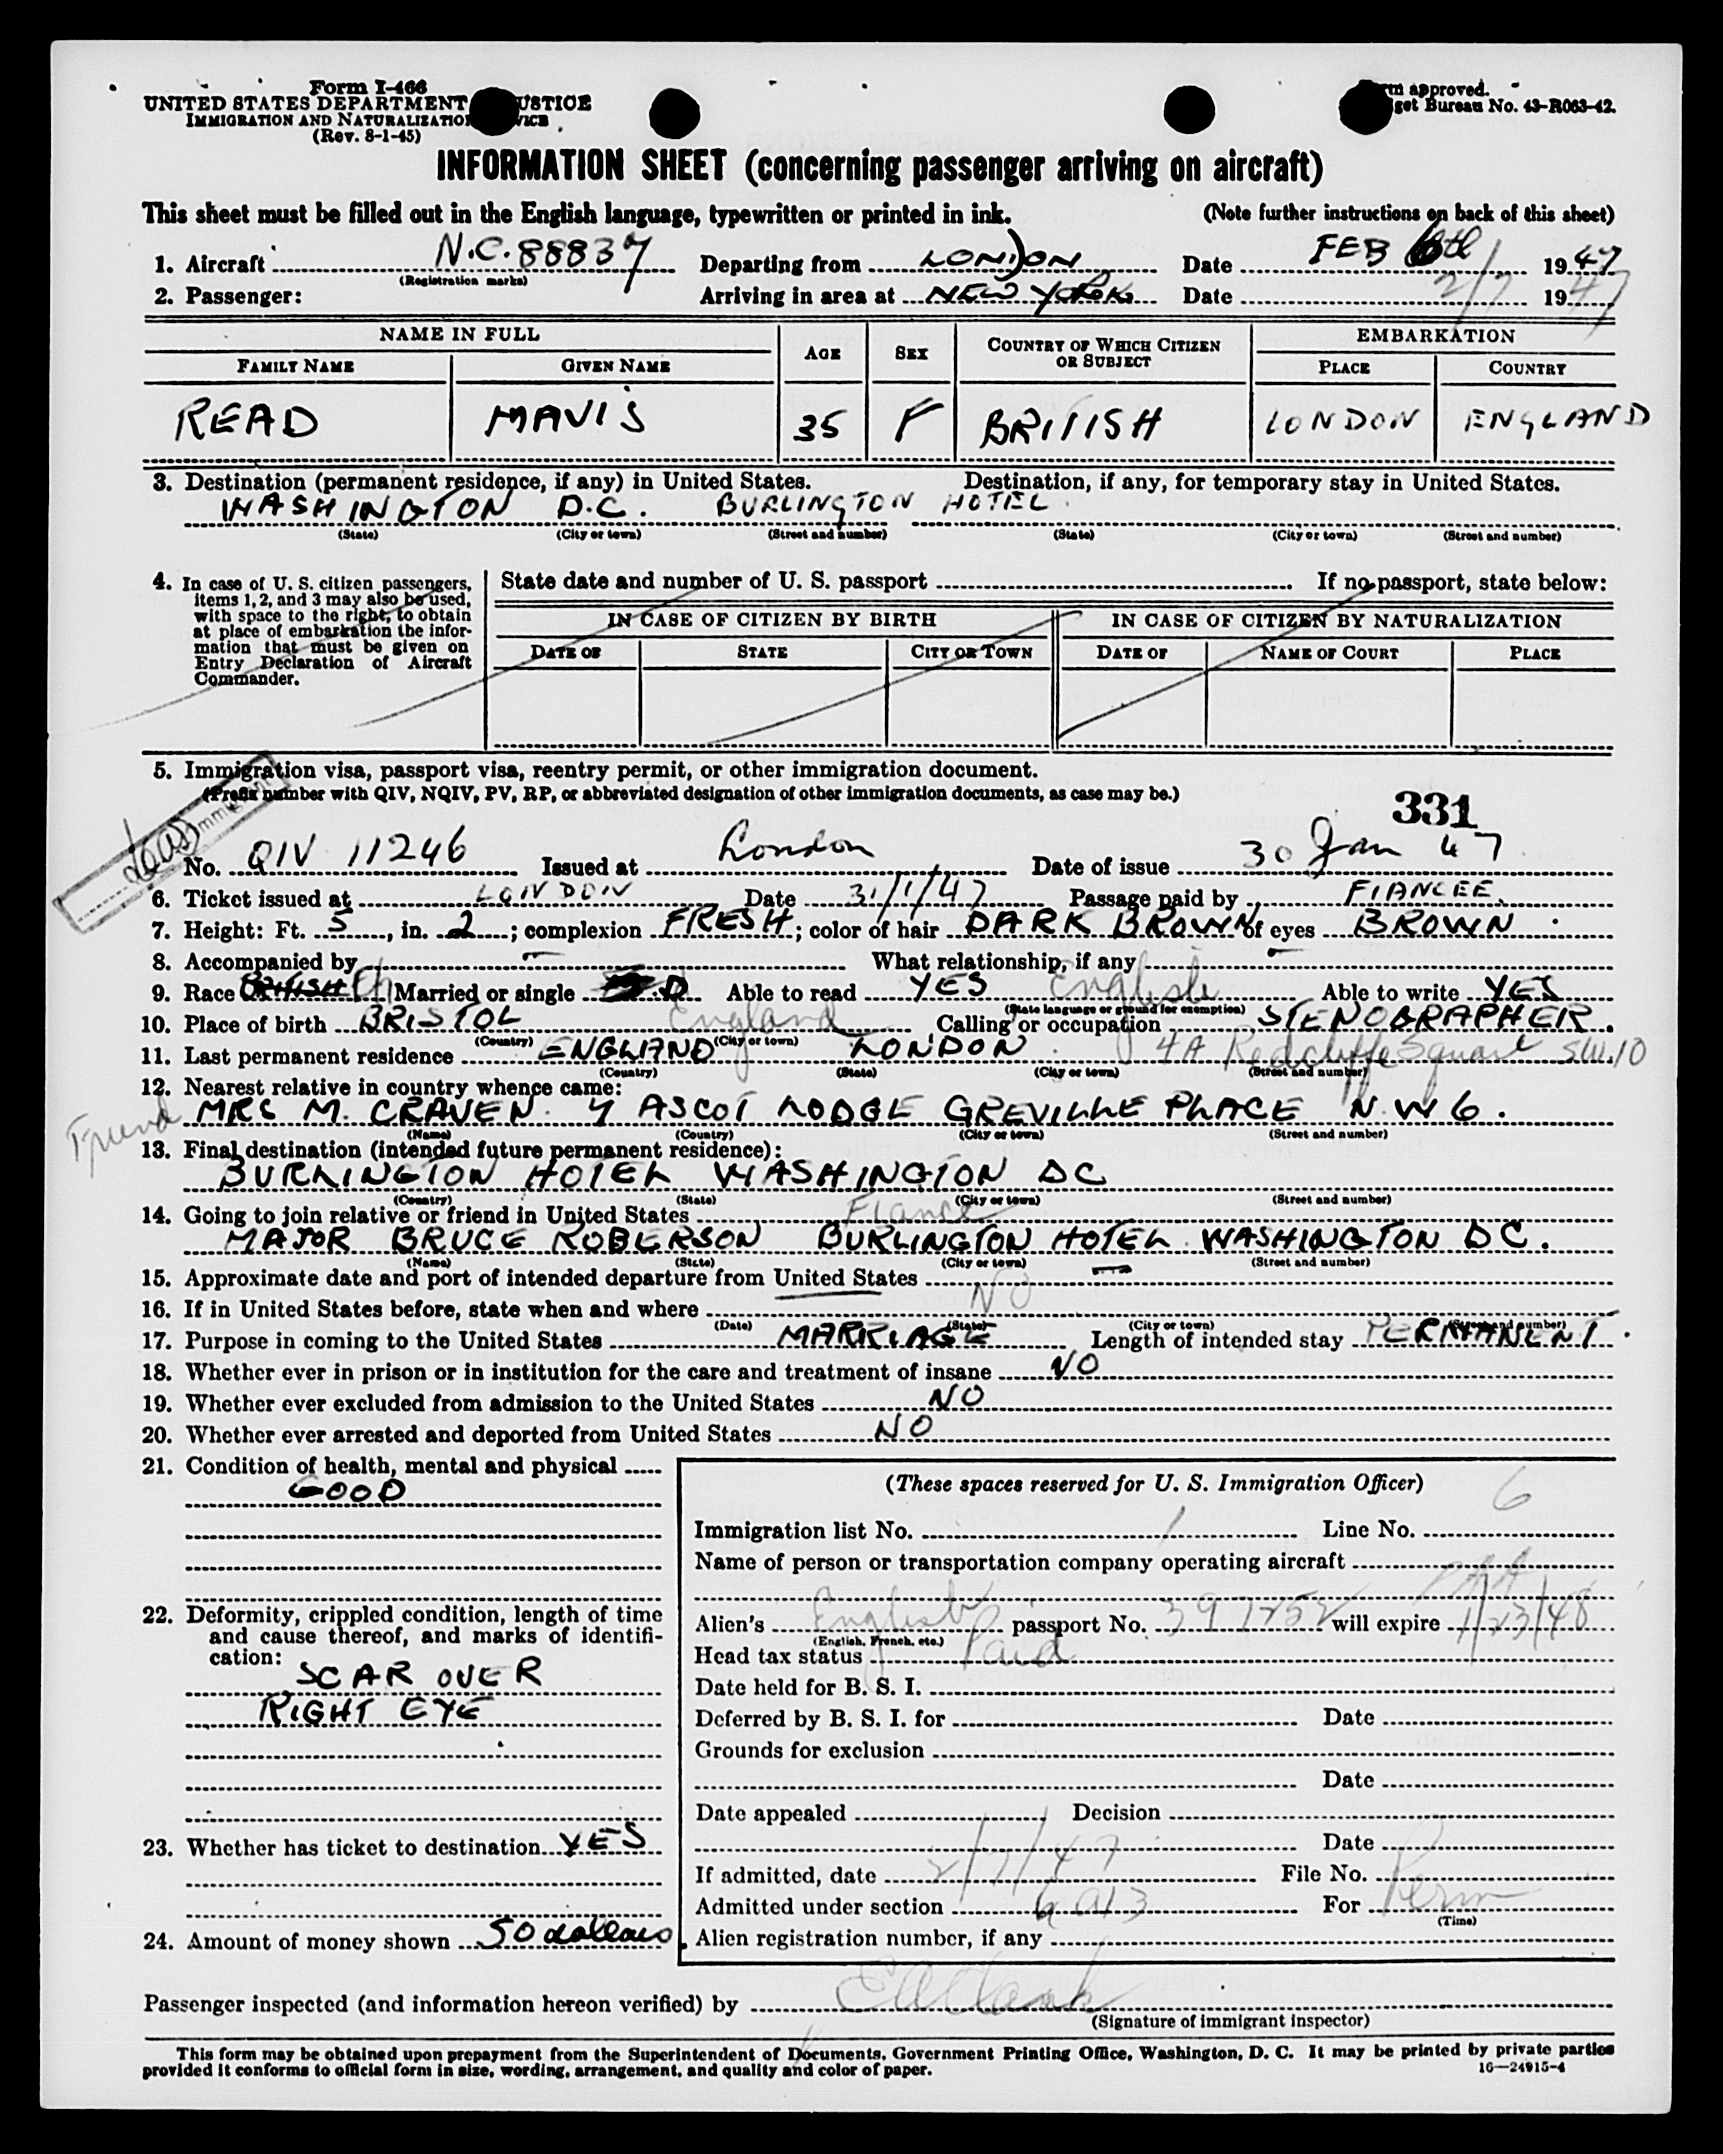 Form I-466
UNITED STATES DEPARTMENT USTICE
IMMIGRATION AND NATURALIZATIO VICE
(Rev. 8-1-45)
rm approved.
get Bureau No. 43-R063-42.
INFORMATION SHEET (concerning passenger arriving on aircraft)
This sheet must be filled out in the English language, typewritten or printed in ink. (Note further instructions on back of this sheet)
1. Aircraft N.C. 88837 Departing from LONDON Date FEB 6th 1947
(Registration marks)
2. Passenger: Arriving in area at NEW YORK Date 2/7 1947
NAME IN FULL AGE SEX COUNTRY OF WHICH CITIZEN OR SUBJECT EMBARKATION
FAMILY NAME GIVEN NAME PLACE COUNTRY
READ MAVIS 35 F BRITISH LONDON ENGLAND
3. Destination (permanent residence, if any) in United States. Destination, if any, for temporary stay in United States.
WASHINGTON D.C. BURLINGTON HOTEL
(State) (City or town) (Street and number) (State) (City or town) (Street and number)
4. In case of U. S. citizen passengers, items 1, 2, and 3 may also be used, with space to the right, to obtain at place of embarkation the information that must be given on Entry Declaration of Aircraft Commander.
State date and number of U. S. passport If no passport, state below:
IN CASE OF CITIZEN BY BIRTH IN CASE OF CITIZEN BY NATURALIZATION
DATE OF STATE CITY OR TOWN DATE OF NAME OF COURT PLACE
5. Immigration visa, passport visa, reentry permit, or other immigration document.
(Prefix number with QIV, NQIV, PV, RP, or abbreviated designation of other immigration documents, as case may be.)
331
No. QIV 11246 Issued at London Date of issue 30 Jan 47
6. Ticket issued at LONDON Date 31/1/47 Passage paid by FIANCEE
7. Height: Ft. 5, in. 2; complexion FRESH; color of hair DARK BROWN of eyes BROWN
8. Accompanied by - What relationship, if any -
9. Race BRITISH Eng Married or single D Able to read YES English Able to write YES
(State language or ground for exemption)
10. Place of birth BRISTOL England Calling or occupation STENOGRAPHER.
(Country) (City or town)
11. Last permanent residence ENGLAND LONDON 4A Redcliffe Square SW.10
(Country) (State) (City or town) (Street and number)
12. Nearest relative in country whence came:
Friend MRS M. CRAVEN. 7 ASCOT LODGE GREVILLE PLACE N.W 6.
(Name) (Country) (City or town) (Street and number)
13. Final destination (intended future permanent residence):
BURLINGTON HOTEL WASHINGTON DC
(Country) (State) (City or town) (Street and number)
14. Going to join relative or friend in United States Fiance
MAJOR BRUCE ROBERSON BURLINGTON HOTEL WASHINGTON DC.
(Name) (State) (City or town) (Street and number)
15. Approximate date and port of intended departure from United States -
16. If in United States before, state when and where NO
(Date) (State) (City or town) (Street and number)
17. Purpose in coming to the United States MARRIAGE Length of intended stay PERMANENT.
18. Whether ever in prison or in institution for the care and treatment of insane NO
19. Whether ever excluded from admission to the United States NO
20. Whether ever arrested and deported from United States NO
21. Condition of health, mental and physical
GOOD
22. Deformity, crippled condition, length of time and cause thereof, and marks of identification:
SCAR OVER
RIGHT EYE
23. Whether has ticket to destination YES
24. Amount of money shown 50 dollars
(These spaces reserved for U. S. Immigration Officer)
Immigration list No. 1 Line No. 6
Name of person or transportation company operating aircraft
Alien's English passport No. 391252 will expire 1/23/48
(English, French, etc.)
Head tax status Paid
Date held for B. S. I.
Deferred by B. S. I. for Date
Grounds for exclusion
Date
Date appealed Decision
Date
If admitted, date 2/7/47 File No.
Admitted under section 6a13 For Perm
(Time)
Alien registration number, if any
Passenger inspected (and information hereon verified) by
(Signature of immigrant inspector)
This form may be obtained upon prepayment from the Superintendent of Documents, Government Printing Office, Washington, D. C. It may be printed by private parties
provided it conforms to official form in size, wording, arrangement, and quality and color of paper. 16—24915-4